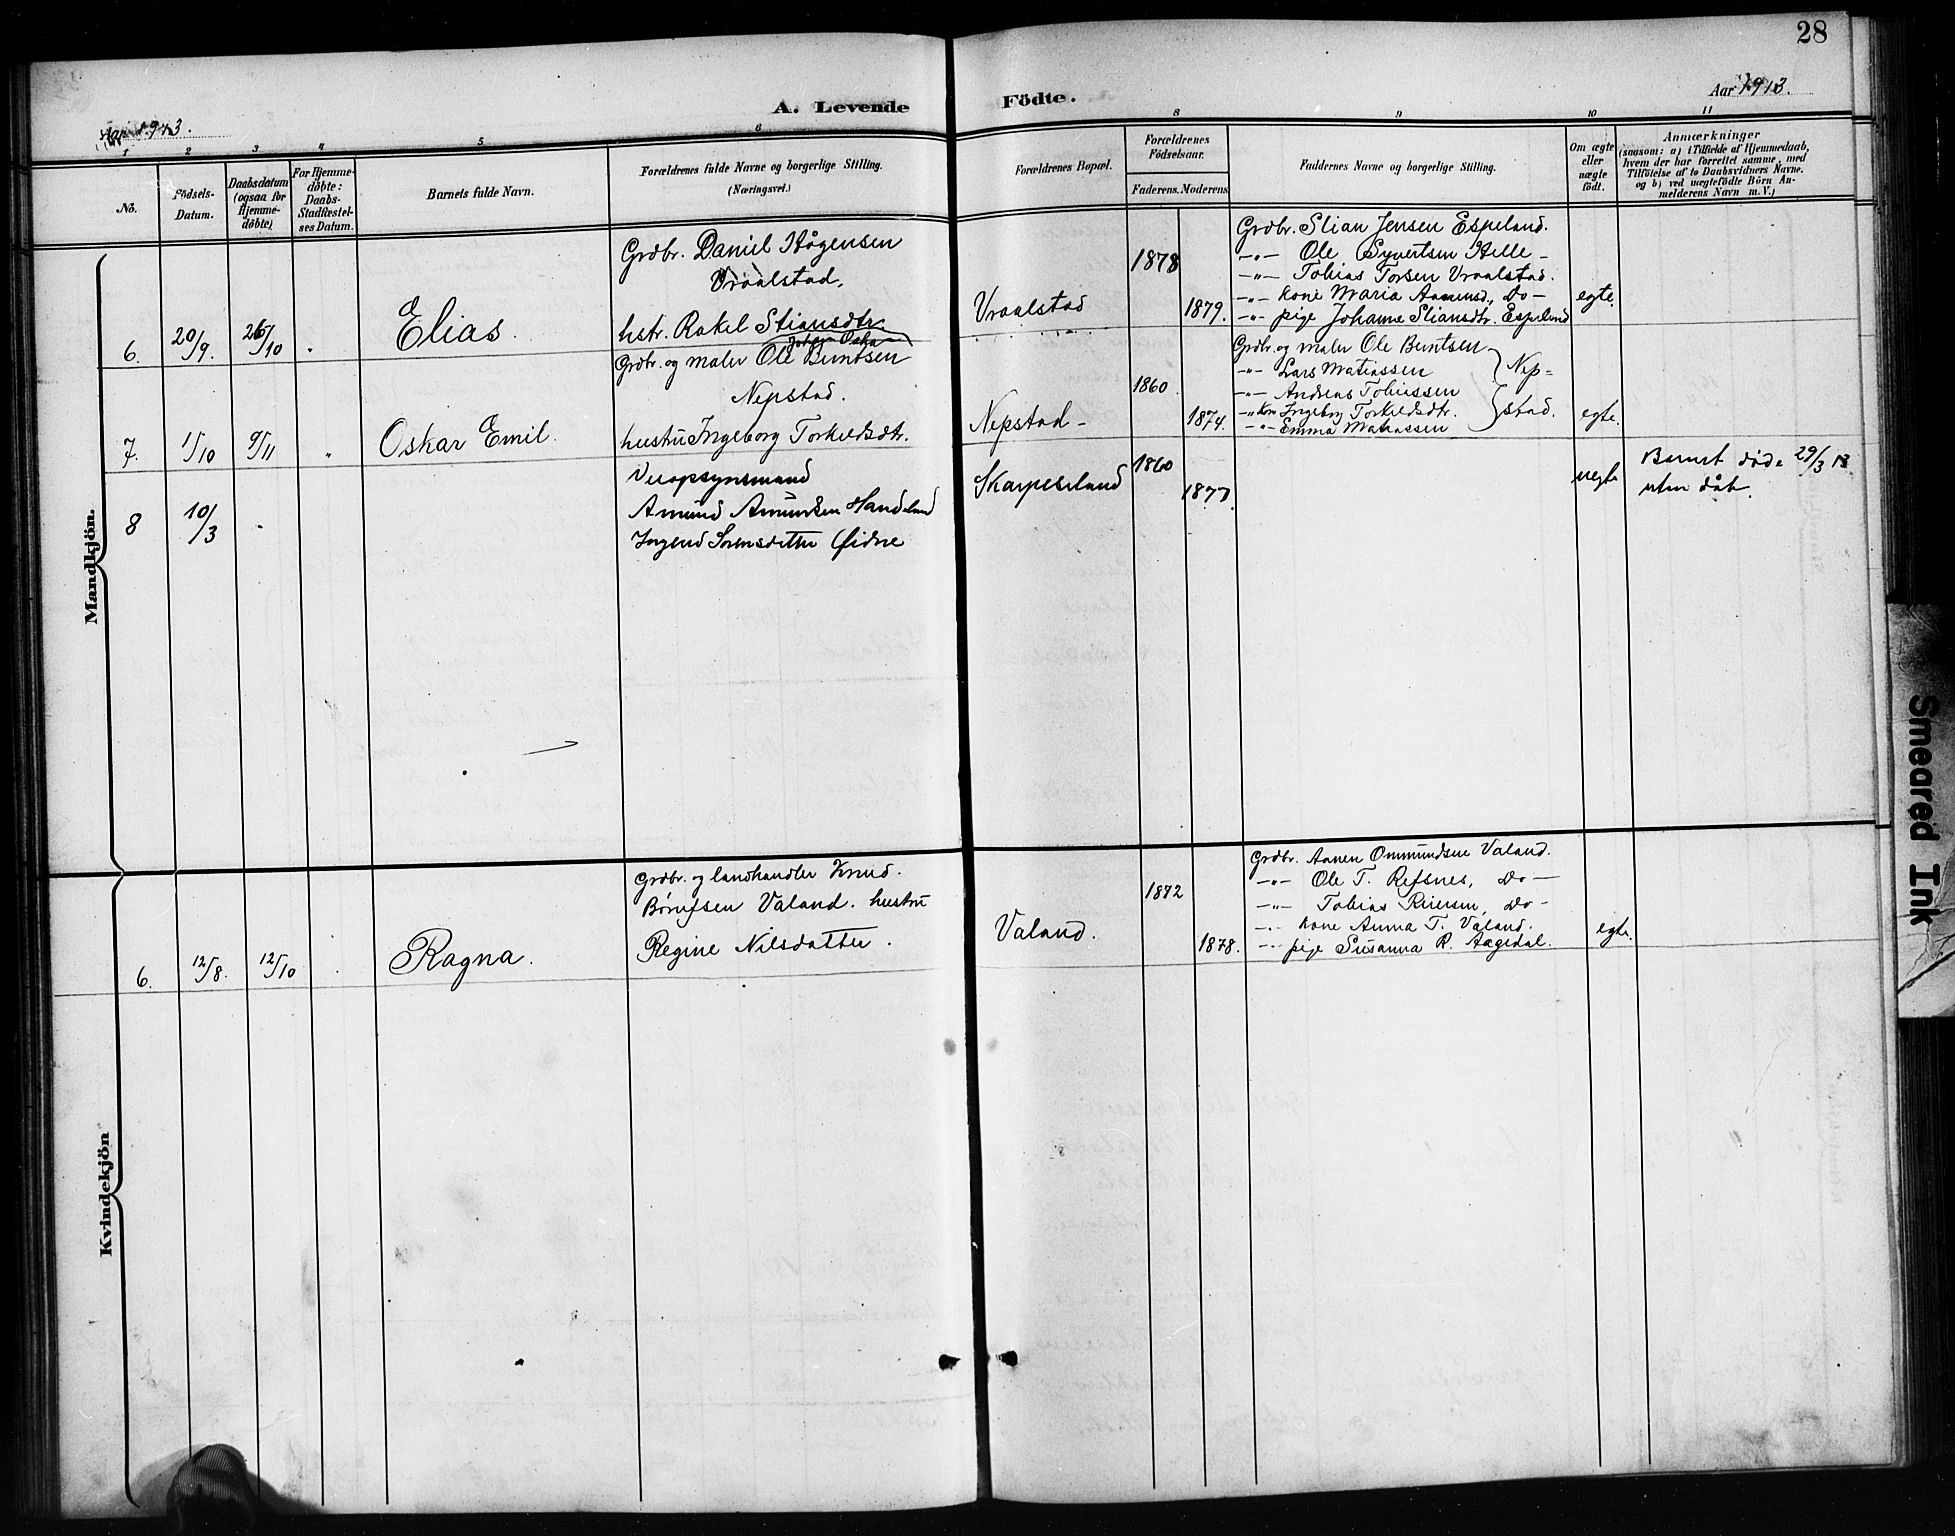 28
A. Levende Födte.
Aar 1913.
Aar 1913.
1 2 3 4 5 6 8 9 10 11
No.
Födsels-
Datum.
Daabsdatum
(ogsaa for
Hjemme-
döbte)
For Hjemme-
döbte:
Daabs-
Stadfæstel-
ses Datum.
Barnets fulde Navn.
Forældrenes fulde Navne og borgerlige Stilling.
(Næringsvei.)
Forældrenes Bopæl.
Forældrenes
Födselsaar.
Faderens. Moderens.
Faddernes Navne og borgerlige Stilling.
Om ægte
eller
uægte
födt.
Anmærkninger
(saasom: a) i Tilfælde af Hjemmedaab,
hvem der har forrettet samme, med
Tilföielse af to Daabsvidners Navne.
og b) ved uægtefödte Börn An-
melderens Navn m. V.)
Mandkjön.
6. 20/9. 26/10 " Elias.
Grdbr. Daniel Hågensen
Vraalstad.
hstr. Rakel Stiansdtr.
Vraalstad
1878
1879.
Grdbr. Stian Jensen Espeland.
-"- Ole Syvertsen Helle -
-"- Tobias Torsen Vraalstad.
-"- kone Maria Aamunsd., Do -
-"- pige Johanne Stiansdtr. Espeland
egte.
7. 1/10 9/11 " Oskar Emil.
Grdbr. og maler Ole Berntsen
Nepstad.
hustru Ingeborg Torkildsdtr.
Nepstad -
1860
1874.
Grdbr. og maler Ole Berntsen
-"- Lars Matiassen
-"- Andreas Tobiassen
-"- kone Ingeborg Torkildsdtr.
-"- Emma Matiassen
Nep=
stad.
egte.
8 10/3 -
Veiopsynsmand
Amund Amundsen Handeland
Sørensdatter Øidne
Skarpeseland
1860
1877.
uegte
Barnet døde 29/3 13
uten dåb.
Kvindekjön
6. 12/8. 12/10 . Ragna.
Grdbr. og landhandler Knud.
Børufsen Valand. hustru
Regine Nilsdatter.
Valand.
1872
1878.
Grdbr. Aanen Ommundsen Valand.
-"- Ole T. Refsnes, Do -
-"- Tobias Reiersen, Do -
-"- kone Anna T. Valand.
-"- pige Susanna R. Aagedal.
egte.
Smeared Ink